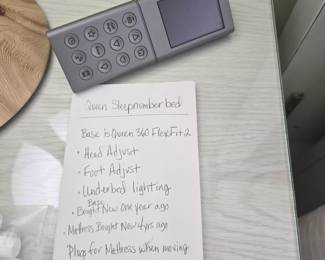 Queen Sleepnumber bed
Base is Queen 360 FlexFit 2
• Head Adjust
• Foot Adjust
• Underbed lighting
Base
• Bought New one year ago
• Mattress Bought New 4 yrs ago
Plugs for Mattress when moving